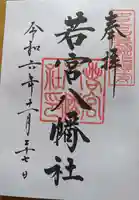 奉拝
若宮八幡社
令和六年十一月二十七日